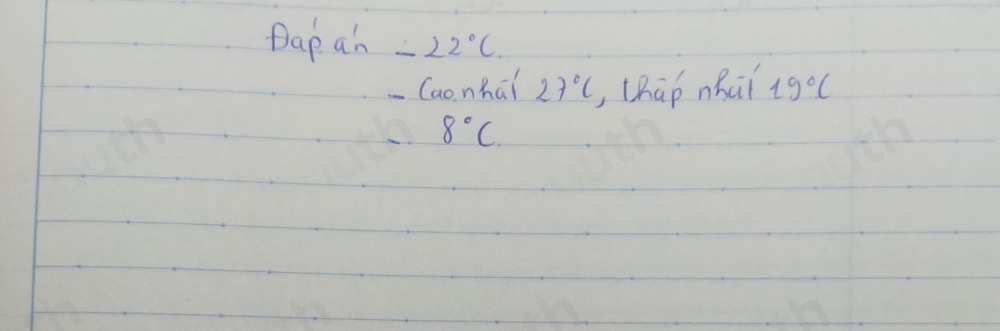 Đáp án - 22°C.
- Cao nhất 27°C, thấp nhất 19°C
- 8°C.